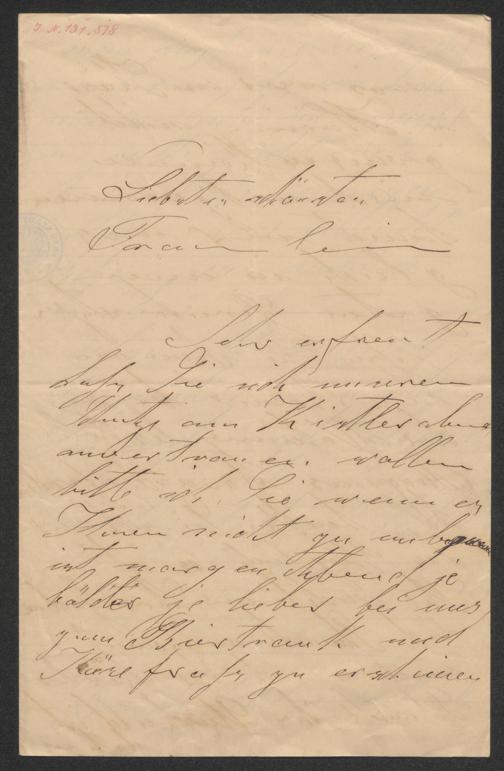 J.N. 131.578
Liebster Kürster
Frau lein
Sehr erfreut
daß Sie sich unserem
Schutz am Künstlerabend
anvertrauen wollen
bitte ich Sie wenn es
Ihnen nicht zu unbequem
ist morgen Abend je
bälder je lieber bei uns
zum Biertrank und
Käsefraß zu erscheinen